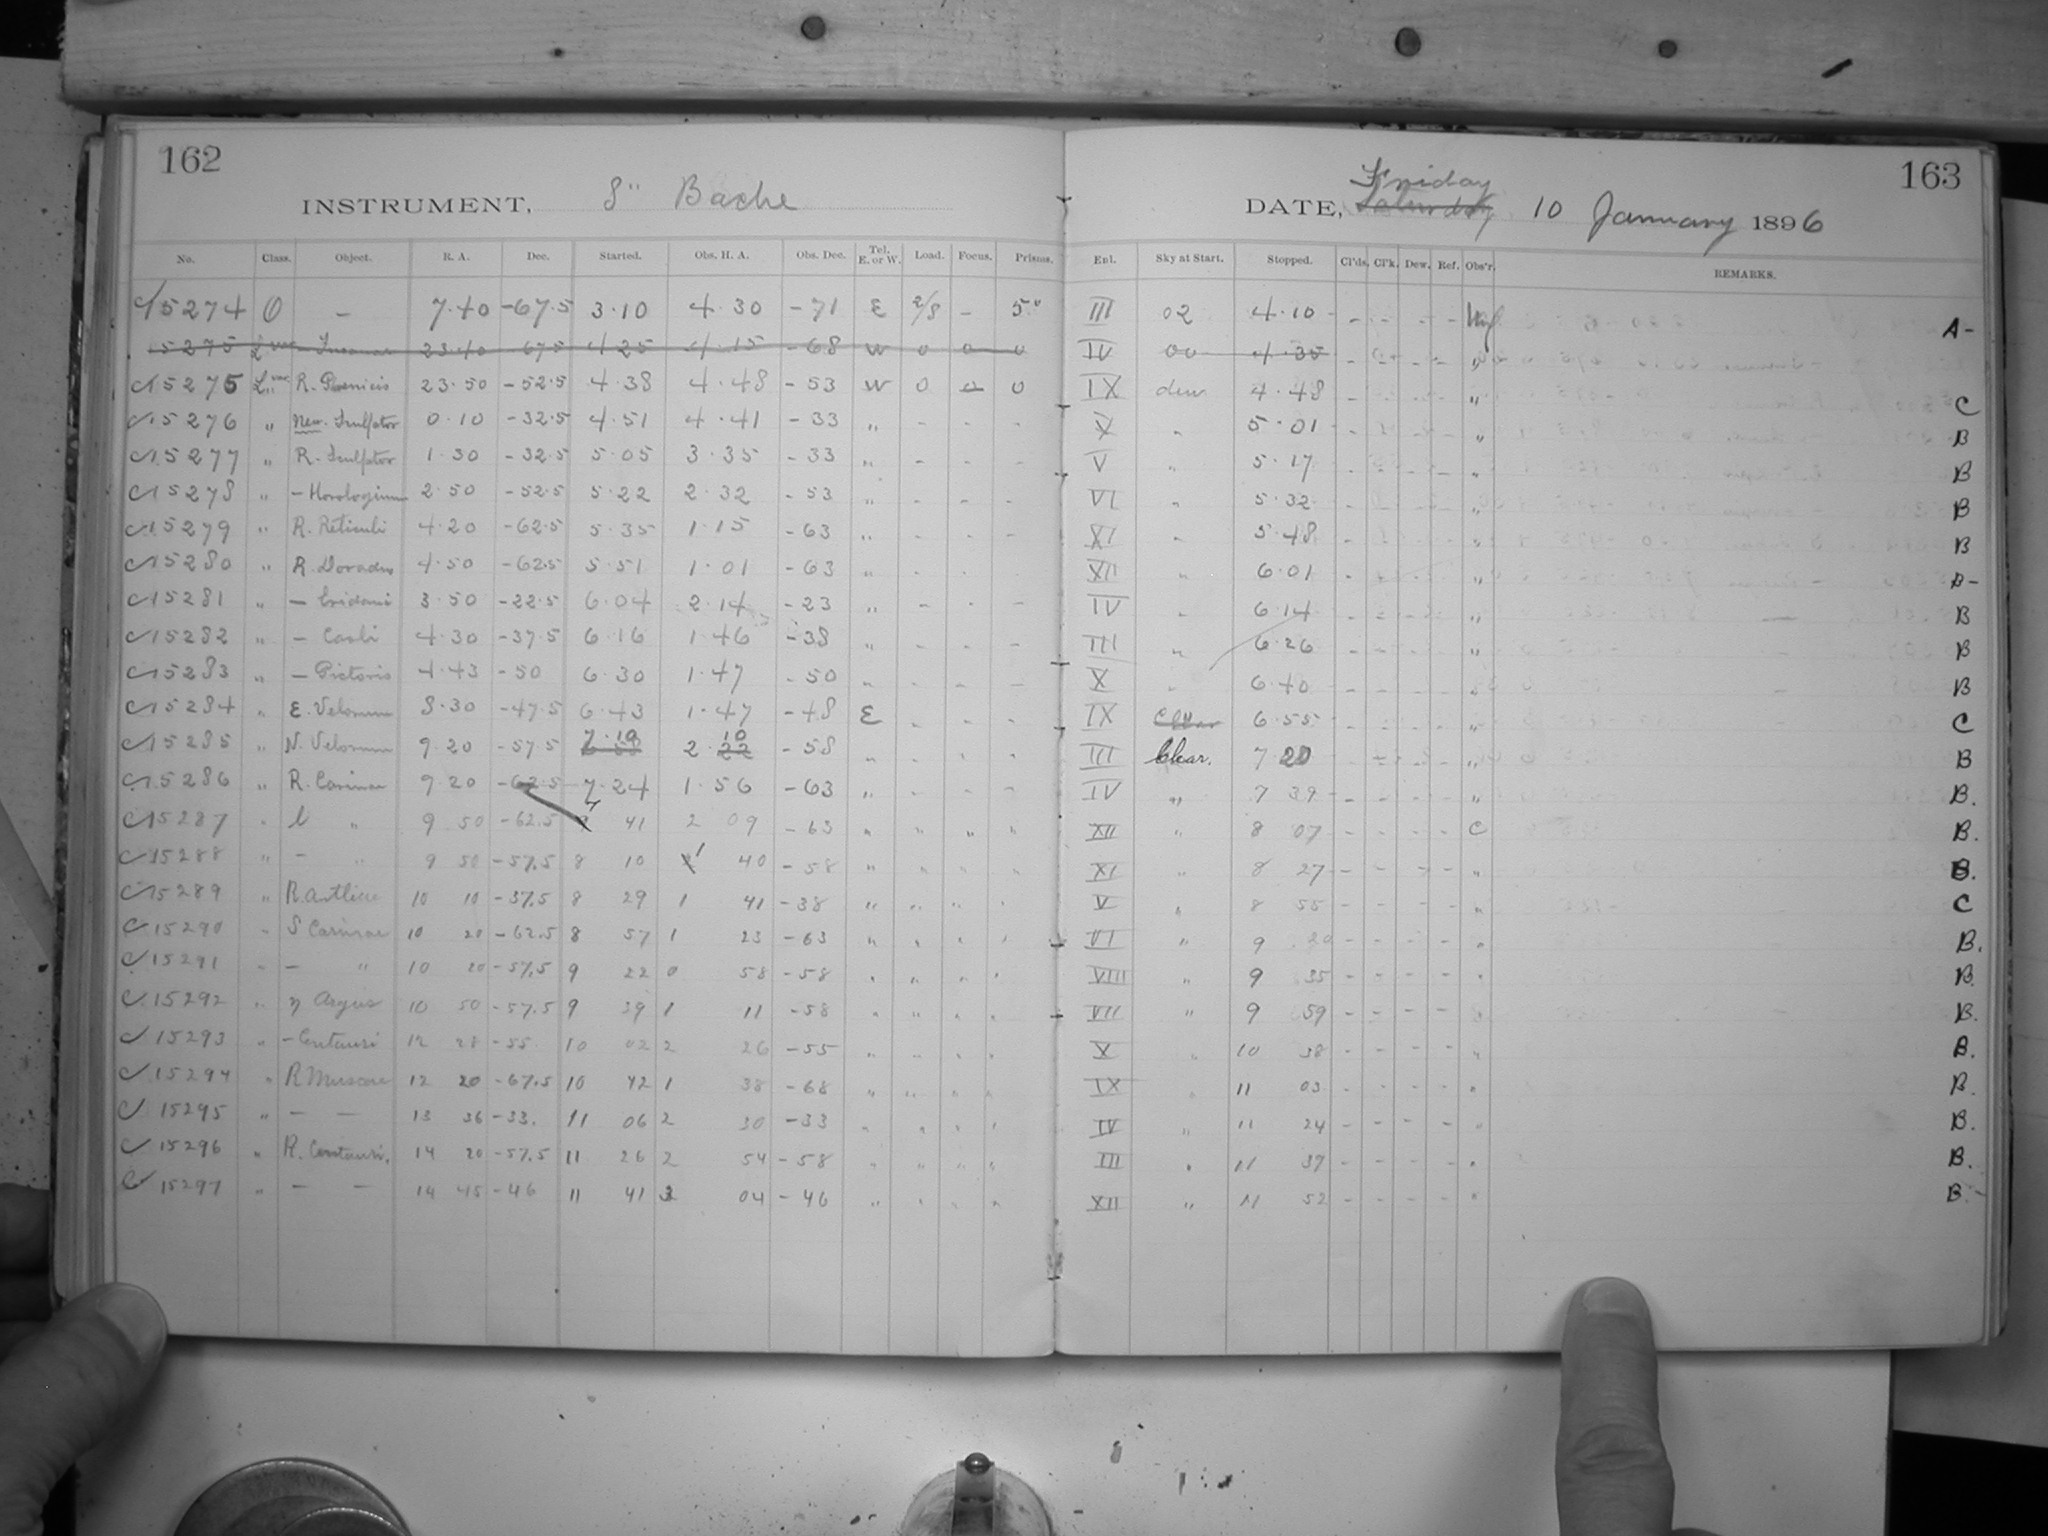 162
INSTRUMENT, 8" Bache
No. Class. Object. R. A. Dec. Started. Obs. H. A. Obs. Dec. Tel. E. or W. Load. Focus. Prisms.
C15274 O – 7.40 -67.5 3.10 4.30 -71 E 2/8 – 5"
15275 23.40 -67.5 4.25 4.15 -68 W 0 0 0
C15275 R. Phoenicis 23.50 -52.5 4.38 4.48 -53 W 0 0 0
C15276 " New. Sculptor 0.10 -32.5 4.51 4.41 -33 " - - -
C15277 " R. Sculptor 1.30 -32.5 5.05 3.35 -33 " - - -
C15278 " – Horologium 2.50 -52.5 5.22 2.32 -53 " - - -
C15279 " R. Reticuli 4.20 -62.5 5.35 1.15 -63 " - - -
C15280 " R. Doradus 4.50 -62.5 5.51 1.01 -63 " - - -
C15281 " – Eridani 3.50 -22.5 6.04 2.14 -23 " - - -
C15282 " – Caeli 4.30 -37.5 6.16 1.46 -38 " - - -
C15283 " – Pictoris 4.43 -50 6.30 1.47 -50 " - - -
C15284 " E. Velorum 8.30 -47.5 6.43 1.47 -48 E - - -
C15285 " N. Velorum 9.20 -57.5 7.10 2.10 22 -58 " - - -
C15286 " R. Carinae 9.20 -62.5 7.24 1.56 -63 " - - -
C15287 " l " 9 50 -62.5 7 41 2 09 -63 " " " "
C15288 " – " 9 50 -57.5 8 10 1 40 -58 " " " "
C15289 " R Antliae 10 10 -37.5 8 29 1 41 -38 " " " "
C15290 " S Carinae 10 20 -62.5 8 57 1 23 -63 " " " "
C15291 " – " 10 20 -57.5 9 22 0 58 -58 " " " "
C15292 " η Argus 10 50 -57.5 9 39 1 11 -58 " " " "
C15293 " – Centauri 12 28 -55 10 02 2 26 -55 " " " "
C15294 " R Muscae 12 20 -67.5 10 42 1 38 -68 " " " "
C15295 " – – 13 36 -33. 11 06 2 30 -33 " " " "
C15296 " R. Centauri. 14 20 -57.5 11 26 2 54 -58 " " " "
C15297 " – – 14 45 -46 11 41 3 04 -46 " " " "
163
Friday
DATE, Saturday 10 January 1896
Enl. Sky at Start. Stopped. Cl'ds. Cl'k. Dew. Ref. Obs'r. REMARKS.
III 02 4.10 - - - - A-
IV 00 4.35 - - - "
IX dew 4.48 - - - - " C
X " 5.01 - - - - " B
V " 5.17 - - - - " B
VI " 5.32 - - - - " B
XI " 5.48 - - - - " B
XII " 6.01 - - - - " B-
IV " 6.14 - - - - " B
III " 6.26 - - - - " B
X " 6.40 - - - - " B
IX Clear 6.55 - - - - " C
III Clear. 7 20 - - - - " B
IV " 7 39 - - - - " B.
XII " 8 07 - - - - C B.
XI " 8 27 - - - - " B.
V " 8 55 - - - - " C
VI " 9 20 - - - - " B.
VIII " 9 35 - - - - " B.
VII " 9 59 - - - - " B.
X " 10 38 - - - - " B.
IX " 11 03 - - - - " B.
IV " 11 24 - - - - " B.
III " 11 37 - - - - " B.
XII " 11 52 - - - - " B.